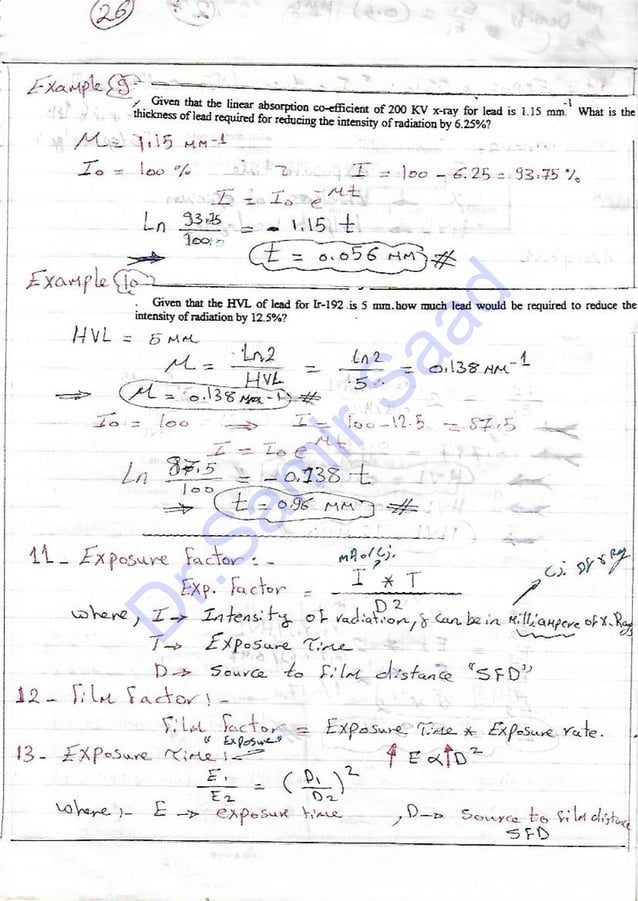 26
Example 9
Given that the linear absorption co-efficient of 200 KV x-ray for lead is 1.15 mm.⁻¹ What is the
thickness of lead required for reducing the intensity of radiation by 6.25%?
M = 1.15 mm⁻¹
I₀ = 100 % I = 100 - 6.25 = 93.75 %
I = I₀ e⁻ᴹᵗ
Ln 93.75/100 = - 1.15 t
t = 0.056 mm #
Example 10
Given that the HVL of lead for Ir-192 is 5 mm.how much lead would be required to reduce the
intensity of radiation by 12.5%?
HVL = 5 mm
M = Ln2/HVL = Ln2/5 = 0.138 mm⁻¹
⇒ M = 0.138 mm⁻¹ #
I₀ = 100 ⇒ I = 100-12.5 = 87.5
I = I₀ e⁻ᴹᵗ
Ln 87.5/100 = - 0.138 t
⇒ t = 0.96 mm #
11 - Exposure Factor :-
mA or Ci.
Exp. Factor = I * T / D²
Ci. of γ Ray
where, I → Intensity of radiation, & can be in Milliampere of X.Rays
T → Exposure Time
D → Source to film distance "SFD"
12 - Film Factor :-
Film Factor = Exposure Time * Exposure rate.
13 - Exposure Time :-
"Exposure"
↑ E α ↑ D²
E₁/E₂ = (D₁/D₂)²
where :- E → exposure time , D → Source to film distance
SFD
Dr.Samir Saad